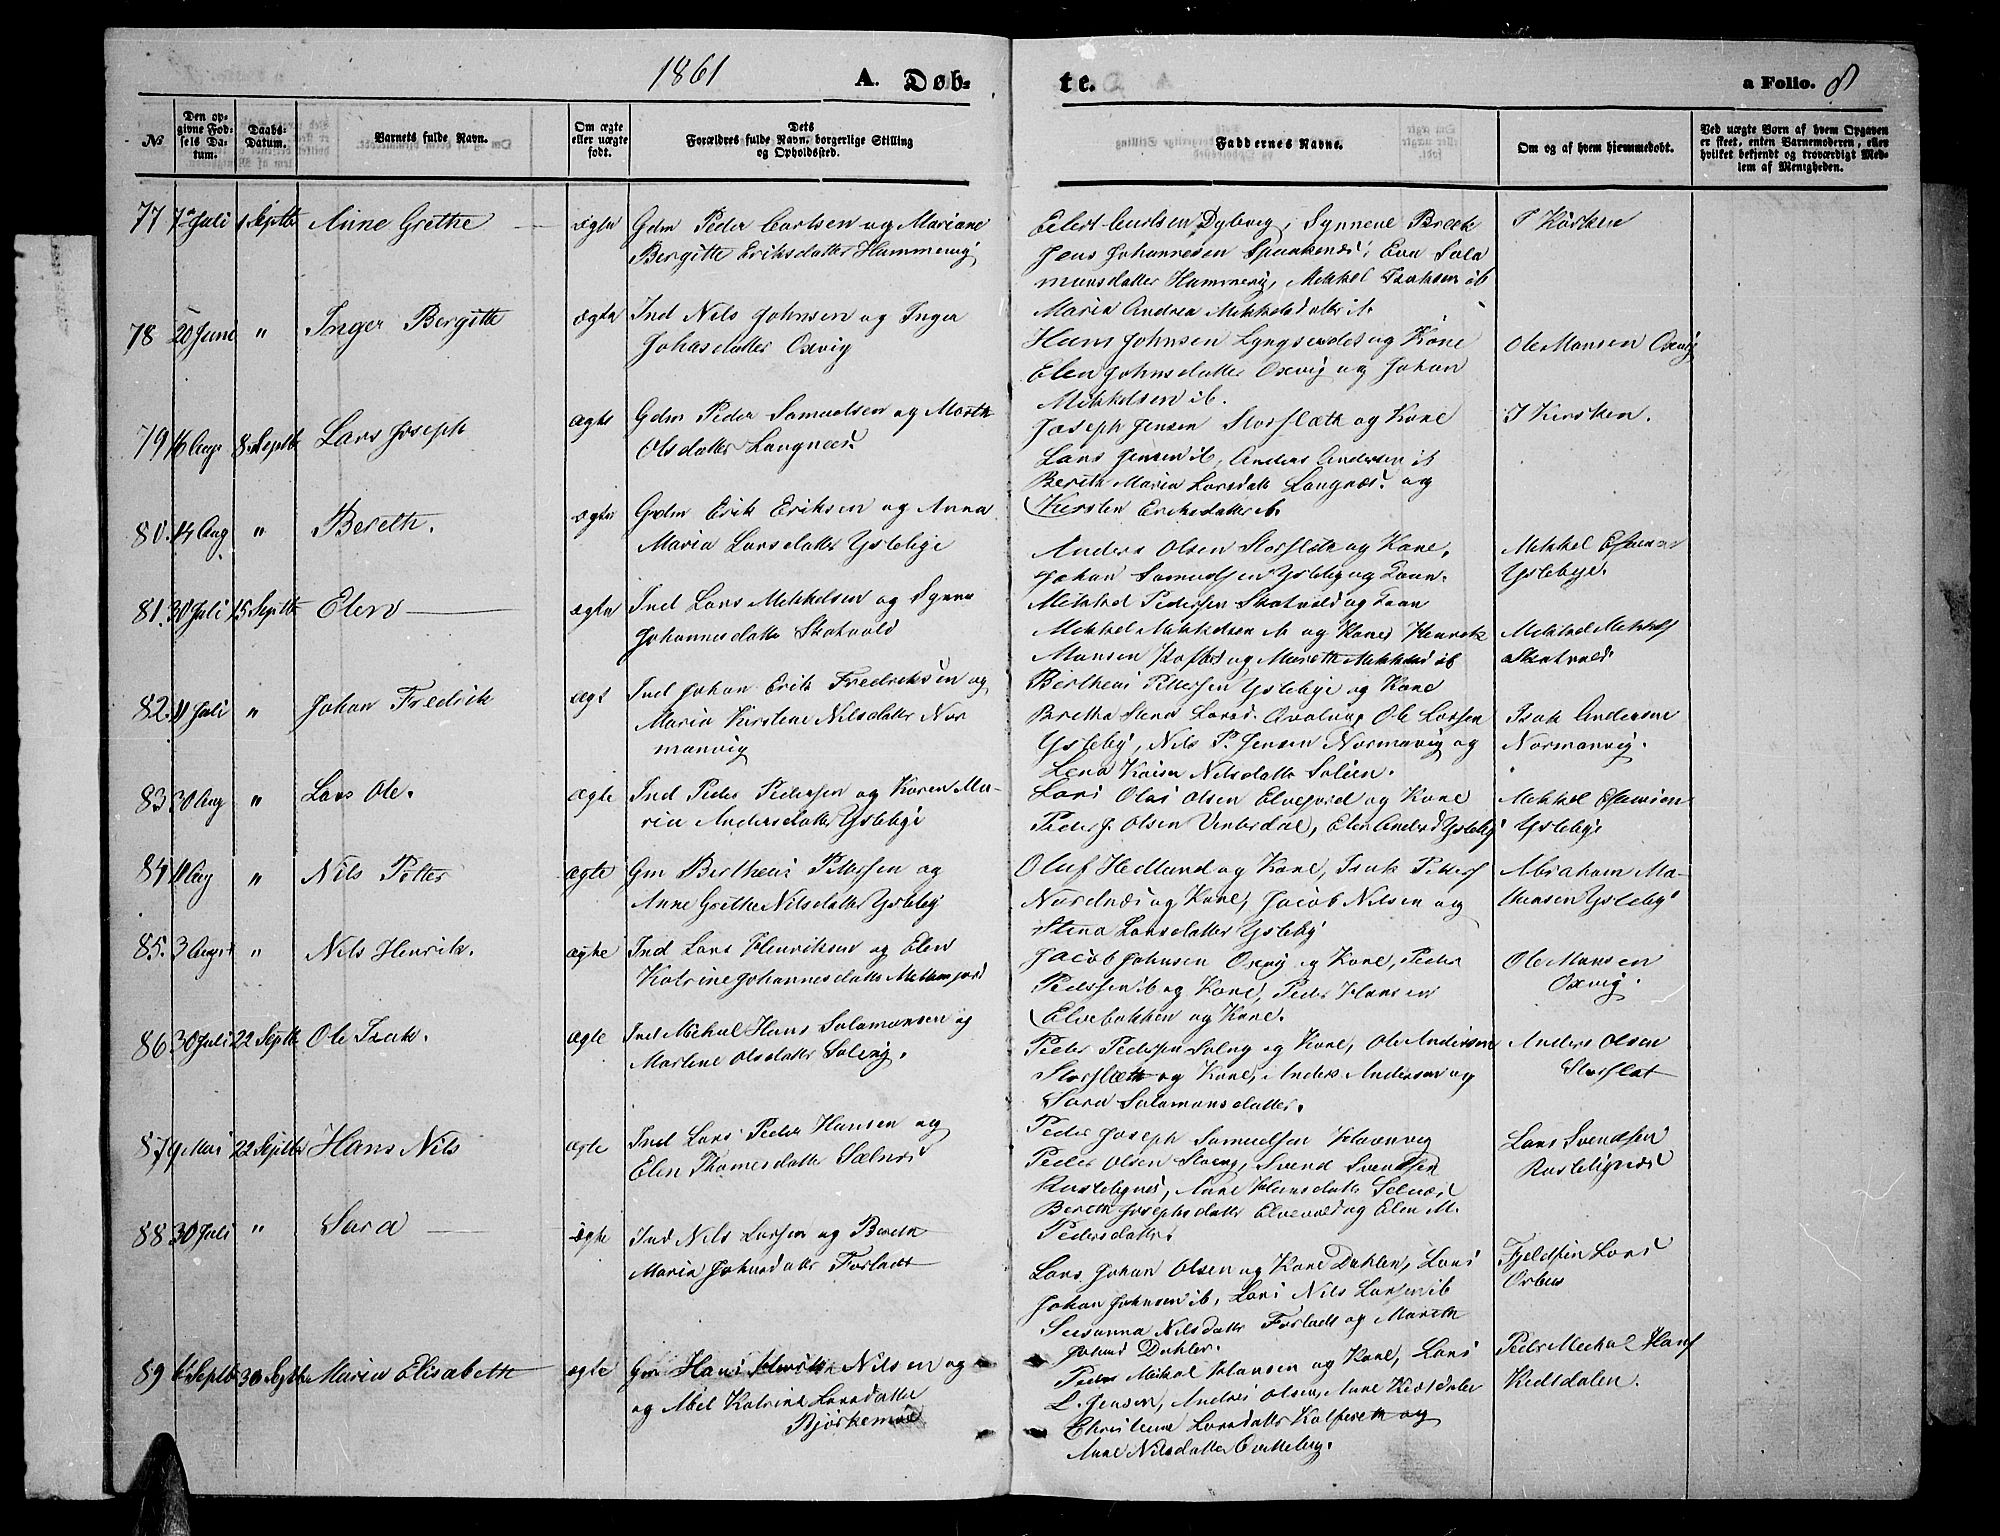 1861
A. Døb-
te.
a Folio. 8
No
Den op-
givne Fød-
sels Da-
tum.
Daabs-
Datum.
Barnets fulde Navn.
Om ægte
eller uægte
født.
Dets
Forældres fulde Navn, borgerlige Stilling
og Opholdssted.
Faddernes Navne.
Om og af hvem hjemmedøbt.
Ved uægte Børn af hvem Opgaven
er skeet, enten Barnemoderen, eller
hvilket bekjendt og troværdigt Med-
lem af Menigheden.
77 7 Juli 1 Septbr Anne Grethe ægte Gdm Peder Carlsen og Mariane
Bergitte Eriksdatter Hammervig
Eilert Carlsen Dybvig, Synneve Bræk
Jens Johannesen Spaakenæs, Eva Sala
monsdatter Hammervig, Mikkel Isaksen ib
Maria Andrea Mikkelsdatter ib.
78 20 Juni " Inger Bergitte ægte Ind Nils Johnsen og Inger
Johasdatter Oxvig
Hans Johnsen Lyngseidet og Kone
Elen Johnsdatter Oxvig og Johan
Mikkelsen ib.
Ole Monsen Oxvig
79 16 Aug 8 Septbr Lars Joseph ægte Gdm Peder Samuelsen og Marth
Olsdatter Langnæs.
Joseph Jensen Storslæth og Kone
Lars Jensen ib, Anders Andersen ib
Bereth Maria Larsdatt Langnæs. og
Kirsten Eriksdatter ib.
80. 14 Aug " Bereth. ægte Gdm Erik Eriksen og Anna
Maria Larsdatter Ysteby
Anders Olsen Storslæth og Kone,
Johan Samuelsen Ysteby og Kone.
Mikkel Esaias
Ysteby.
81. 30 Juli 15 Septbr Elen ægte Ind Lars Mikkelsen og Synne
Johannesdatter Skotvold
Mikkel Pedersen Skotvold og Kone
Mikkel Mikkelsen ib og Kone Henrik
Monsen og Mareth Mikkels ib
Mikkel Mikkels
Skotvold
82. 11 Juli " Johan Fredrik ægt Ind Johan Erik Fredriksen og
Maria Kirstine Nilsdatter Nor
manvig
Bertheus Pettersen Ysteby og Kone
Ole Larsen
Ysteby, Nils P. Jensen Normanvig og
Lena Kaisa Nilsdatter
Isak Andersen
Normanvig.
83 30 Aug " Lars Ole. ægte Ind Peder Pedersen og Karen Ma-
ria Andersdatter Ysteby
Lars Olai Olsen Elvejord og Kone
Peder J. Olsen Elen Andersd Ysteby
Mikkel Esaisen
Ysteby
84 11 Aug " Nils Petter ægte Gm Bertheus Pettersen og
Anne Grethe Nilsdatter Ysteby
Oluf Hedlund og Kone, Isak Petters
Nordnæs og Kone, Jacob Nilsen og
Stina Larsdatter Ysteby
Abraham Ma-
thisen Ysteby
85. 3 Augst " Nils Henrik. ægte Ind Lars Henriksen og Elen
Katrine Johannesdatter
Jacob Johnsen Oxvig og Kone, Peder
Pedersen ib og Kone, Peder Hansen
Elvebakken og Kone.
Ole Monsen
Oxvig.
86 30 Juli 22 Septbr Ole Isak. ægte Ind Mikal Hans Salamonsen og
Martine Olsdatter Solvig.
Peder Pedersen Solvig og Kone, Ole Andersen
Storslæth og Kone, Anders Andersen og
Sara Salamonsdatter.
Anders Olsen
Storslæt
87 9 Mai 22 Septbr Hans Nils ægte Ind Lars Peder Hansen og
Elen Thomesdatter Selnæs
Peder Joseph Samuelsen Havnvig
Peder Olsen Svend Svendsen
Anne Hansdatter Selnæs
Bereth Josephsdatter Elvevold og Elen M.
Pedersdatter.
Lars Svendsen
88 30 Juli " Sara ægte Ind Nils Larsen og Bereth
Maria Johnsdatter Forladt
Lars Johan Olsen og Kone Dahlen, Lars
Johan Johnsen ib, Lars Nils Larsen ib
Susanna Nilsdatter Forladt og Mareth
Johns Dahlen.
Fjeldfin Lars
89 Septb 30 Septbr Maria Elisabeth ægte Gm Hans Henrik Nilsen og
og Abel Katrine Larsdatter
Bjørkemoe
Peder Mikal Hansen og Kone, Lars
L. Jensen, Andreas Olsen, Anne
Christiane Larsdatter og
Anne Nilsdatter
Peder Mechal Hans
Kidtdalen.